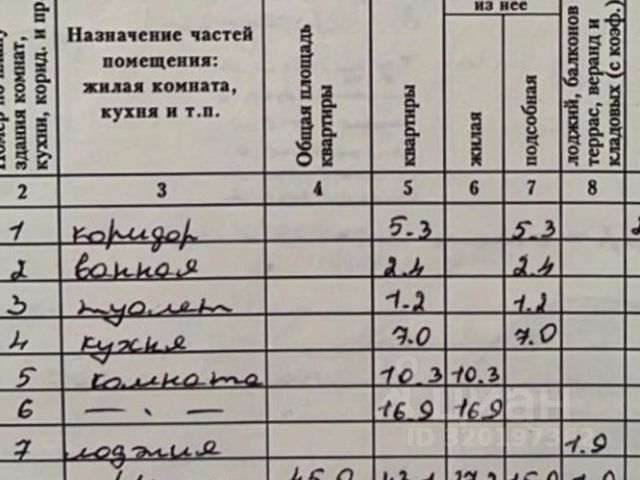 из нее
Номер по плану здания комнат, кухни, корид. и пр
Назначение частей
помещения:
жилая комната,
кухня и т.п.
Общая площадь
квартиры
квартиры
жилая
подсобная
лоджий, балконов
террас, веранд и
кладовых (с коэф.)
2 3 4 5 6 7 8
1 коридор 5.3 5.3
2 ванная 2.4 2.4
3 туалет 1.2 1.2
4 кухня 7.0 7.0
5 комната 10.3 10.3
6 — . — 16.9 16.9
7 лоджия 1.9
ID 320197362